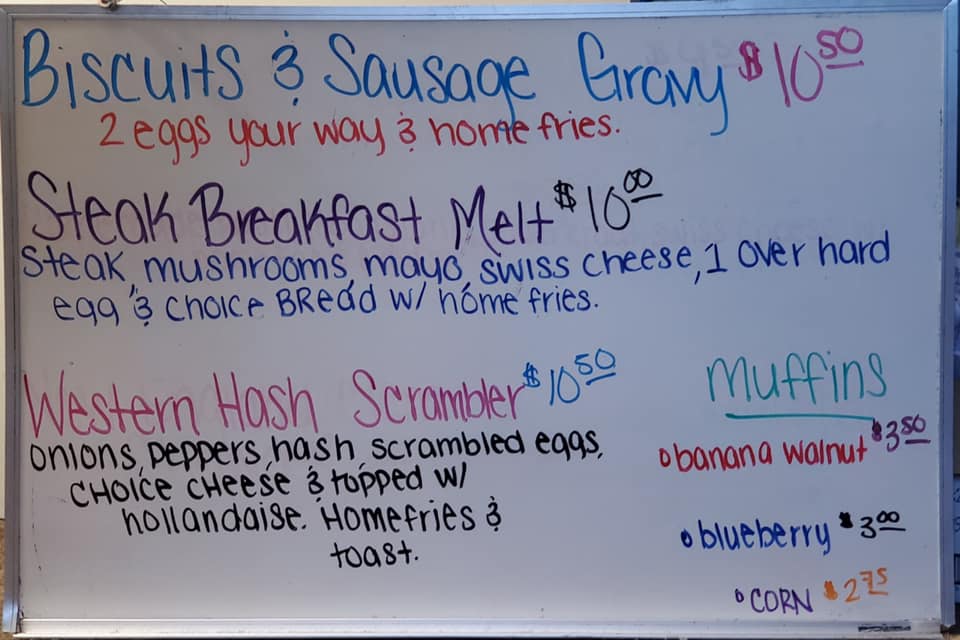 Biscuits & Sausage Gravy $10 50
2 eggs your way & home fries.
Steak Breakfast Melt $10 00
Steak, mushrooms, mayo, swiss cheese, 1 over hard
egg & choice BREAD w/ home fries.
Western Hash Scrambler $10 50
onions, peppers, hash, scrambled eggs,
CHOICE CHEESE & topped w/
hollandaise. Homefries &
toast.
Muffins
banana walnut $3 50
blueberry $3 00
CORN $2 75